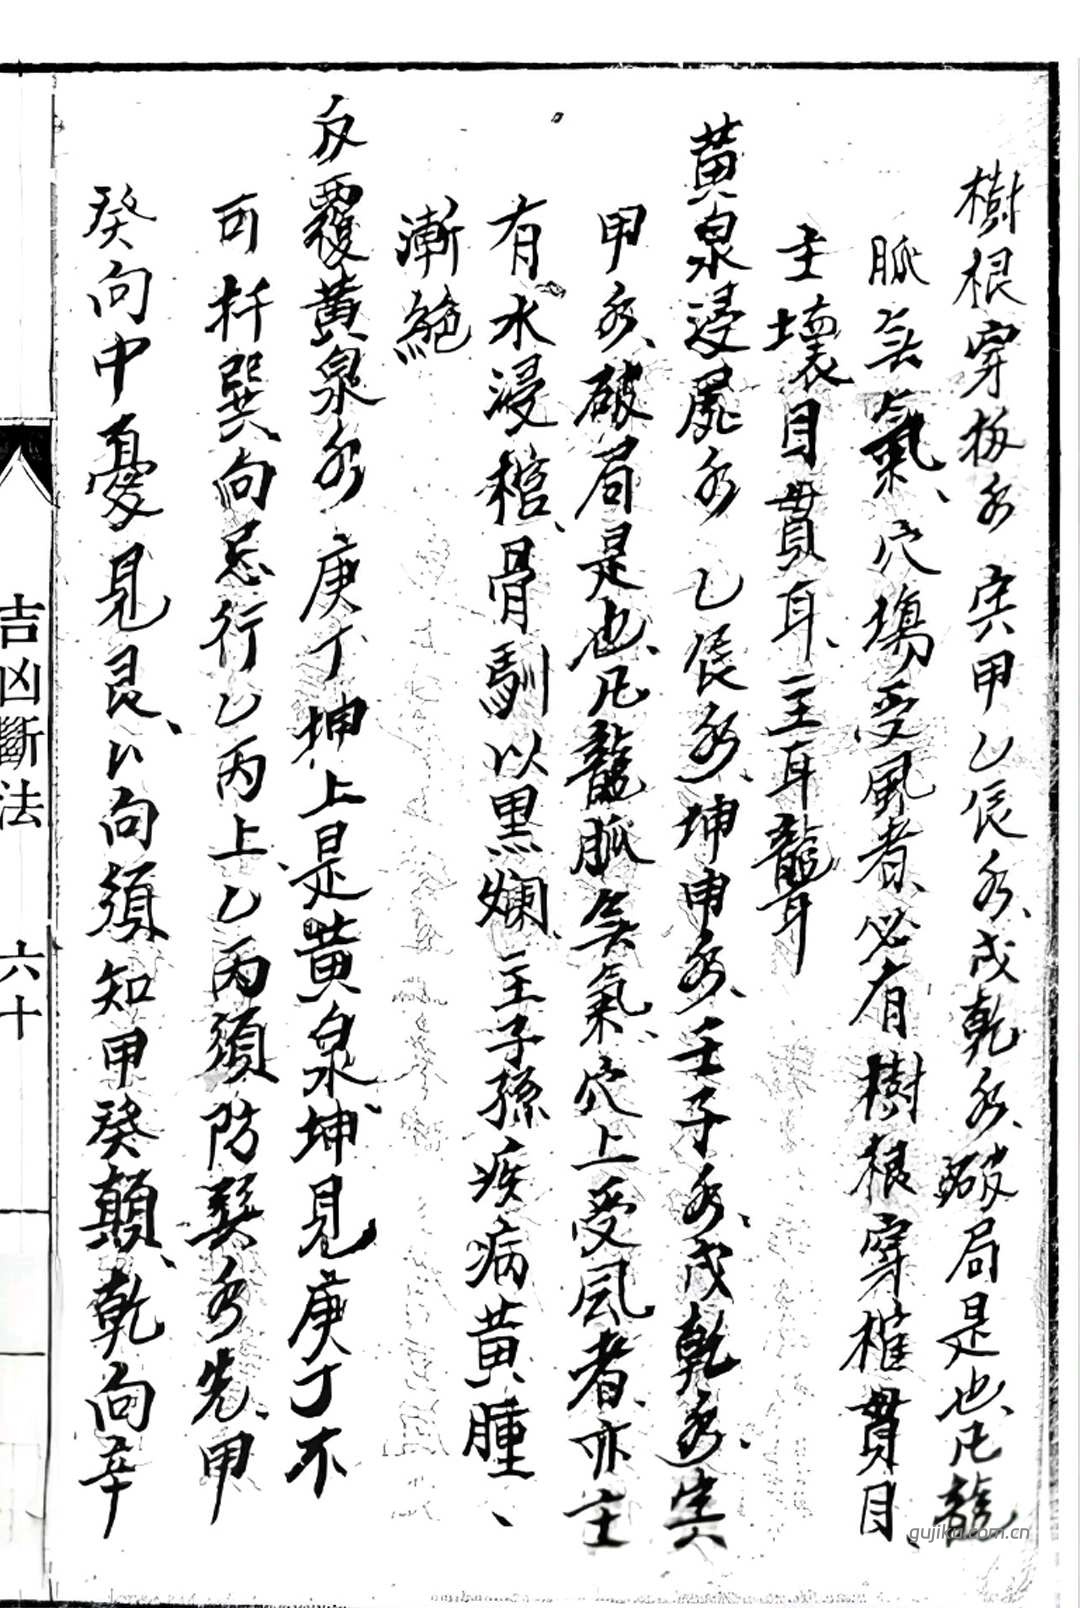 樹根穿板水 寅甲乙辰水、戌乾水、破局是也、凡龍
脈無氣、穴塲受風者、必有樹根穿棺貫目、
主壞目貫耳、主耳聾
黃泉浸屍水 乙辰水、坤申水、壬子水、戌乾水、寅
甲水、破局是也、凡龍脈無氣、穴上受風者、亦主
有水浸棺、骨馴以黑爛、主子孫疾病黃腫、
漸絕
反覆黃泉水 庚丁坤上是黃泉、坤見庚丁不
可扦巽向忌行乙丙上、乙丙須防巽水先、甲
癸向中憂見艮、艮向須知甲癸顛、乾向辛
吉凶斷法 六十
gujika.com.cn